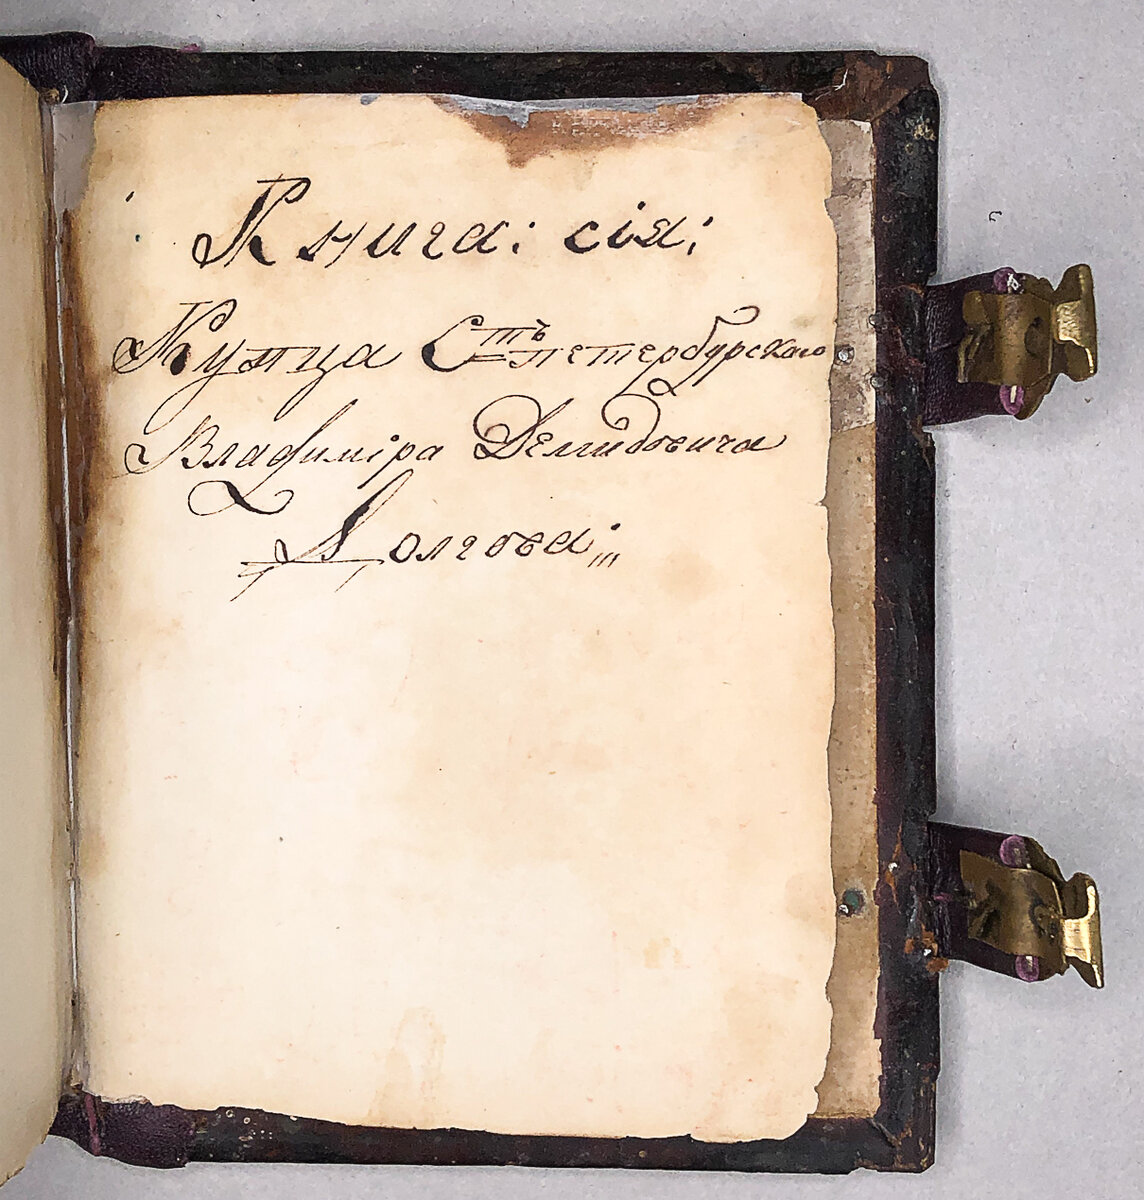 Книга: сія:
Купца Стъ=петербурского
Владиміра Демидовича
Долгова;,,,